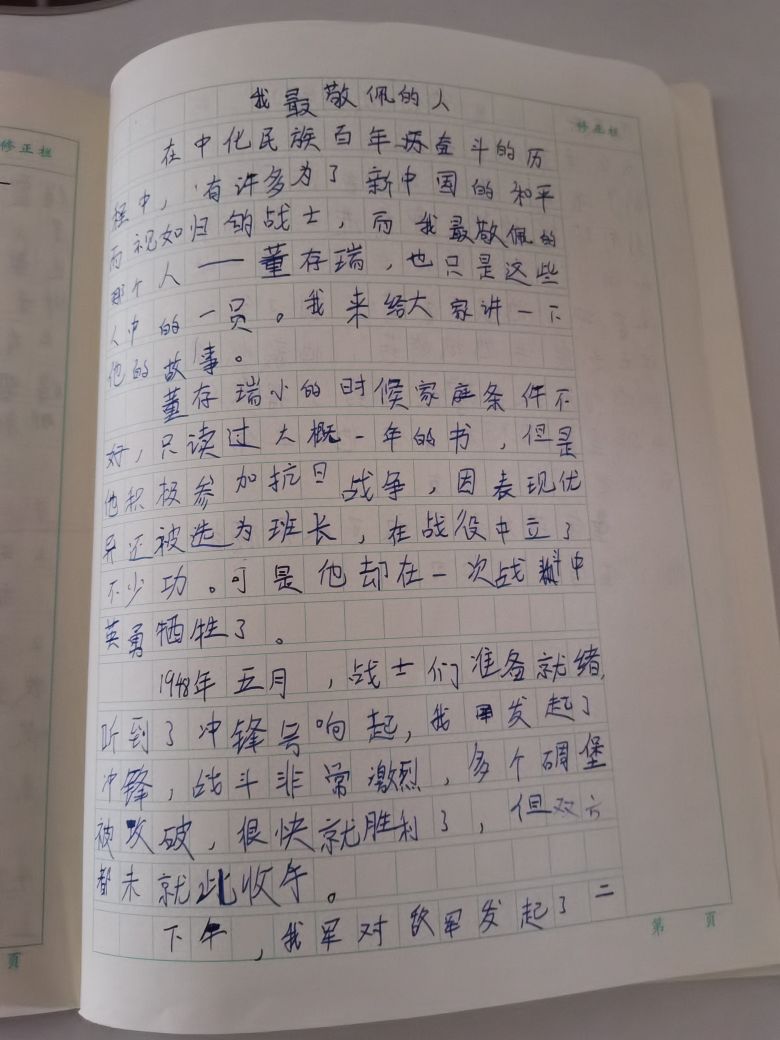 我最敬佩的人
修正栏
修正栏
在中化民族百年奋斗的历
程中，有许多为了新中国的和平
而视如归的战士，而我最敬佩的
那个人——董存瑞，也只是这些
人中的一员。我来给大家讲一下
他的故事。
董存瑞小的时候家庭条件不
好，只读过大概一年的书，但是
他积极参加抗日战争，因表现优
异还被选为班长，在战役中立了
不少功。可是他却在一次战斗中
英勇牺牲了。
1948年五月，战士们准备就绪，
听到了冲锋号响起，我军发起了
冲锋，战斗非常激烈，多个碉堡
被攻破，很快就胜利了，但双方
都未就此收手。
下午，我军对敌军发起了二
第 页
页